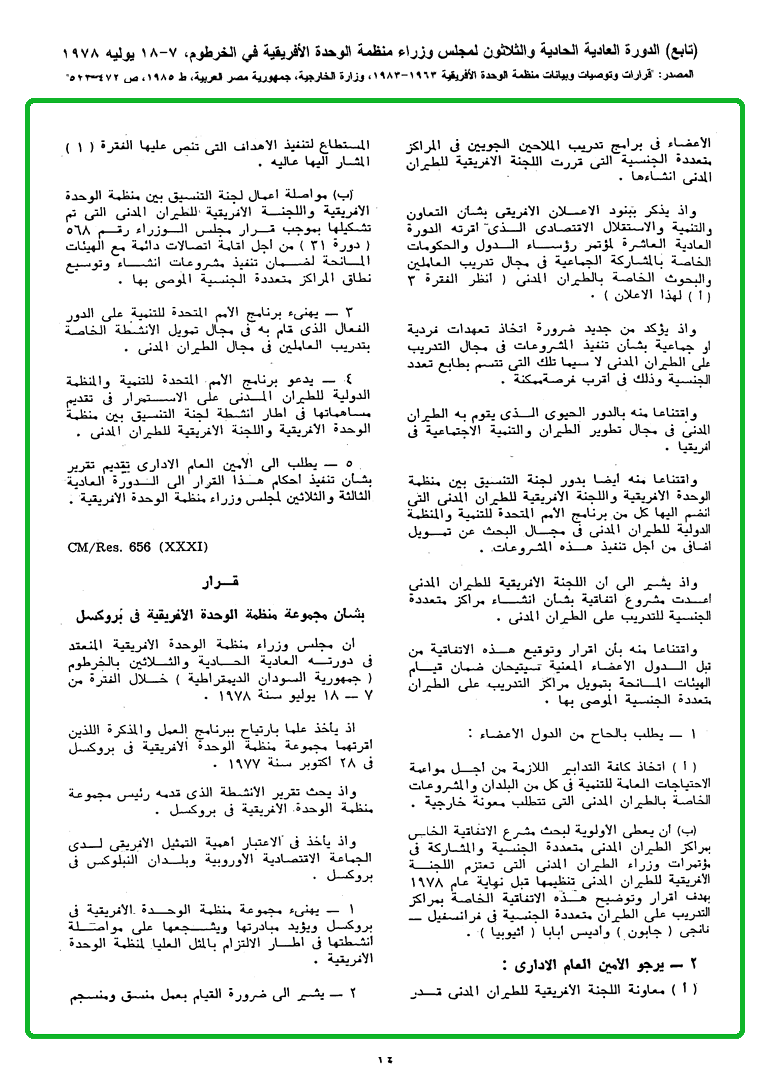 (تابع) الدورة العادية الحادية والثلاثون لمجلس وزراء منظمة الوحدة الأفريقية في الخرطوم، ٧-١٨ يوليه ١٩٧٨
المصدر: "قرارات وتوصيات وبيانات منظمة الوحدة الأفريقية ١٩٦٣-١٩٨٣، وزارة الخارجية، جمهورية مصر العربية، ط ١٩٨٥، ص ٤٧٢-٥٢٣"
الأعضاء فى برامج تدريب الملاحين الجويين فى المراكز
متعددة الجنسية التى قررت اللجنة الافريقية للطيران
المدنى انشاءها .
واذ يذكر ببنود الاعلان الافريقى بشأن التعاون
والتنمية والاستقلال الاقتصادى الـذى اقرته الدورة
العادية العاشرة لمؤتمر رؤسـاء الـدول والحكومات
الخاصة بالمشاركة الجماعية فى مجال تدريب العاملين
والبحوث الخاصة بالطيران المدنى ( انظر الفقرة ٣
( أ ) لهذا الاعلان ) .
واذ يؤكد من جديد ضرورة اتخاذ تعهدات فردية
او جماعية بشأن تنفيذ المشروعات فى مجال التدريب
على الطيران المدنى لا سيما تلك التى تتسم بطابع تعدد
الجنسية وذلك فى اقرب فرصة ممكنة .
واقتناعا منه بالدور الحيوى الـذى يقوم به الطيران
المدنى فى مجال تطوير الطيران والتنمية الاجتماعية فى
افريقيا .
واقتناعا منه ايضا بدور لجنة التنسيق بين منظمة
الوحدة الافريقية واللجنة الافريقية للطيران المدنى التى
انضم اليها كل من برنامج الامم المتحدة للتنمية والمنظمة
الدولية للطيران المدنى فى مجـال البحث عن تمـويل
اضافى من اجل تنفيذ هـذه المشروعات .
واذ يشير الى ان اللجنة الافريقية للطيران المدنى
اعـدت مشروع اتفاقية بشأن انشـاء مراكز متعددة
الجنسية للتدريب على الطيران المدنى .
واقتناعا منه بأن اقرار وتوقيع هـذه الاتفاقية من
قبل الـدول الاعضاء المعنية سيتيحان ضمان قيـام
الهيئات المـانحة بتمويل مراكز التدريب على الطيران
متعددة الجنسية الموصى بها .
١ ــ يطلب بالحاح من الدول الاعضاء :
( أ ) اتخاذ كافة التدابير اللازمة من اجـل مواءمة
الاحتياجات العامة للتنمية فى كل من البلدان والمشروعات
الخاصة بالطيران المدنى التى تتطلب معونة خارجية .
(ب) أن يعطى الاولوية لبحث مشرع الاتفاقية الخاص
بمراكز الطيران المدنى متعددة الجنسية والمشاركة فى
مؤتمرات وزراء الطيران المدنى التى تعتزم اللجنـة
الافريقية للطيران المدنى تنظيمها قبل نهاية عام ١٩٧٨
بهدف اقرار وتوضيح هـذه الاتفاقية الخاصة بمراكز
التدريب على الطيران متعددة الجنسية فى فرانسفيل ــ
نانجى ( جابون ) واديس أبابا ( اثيوبيا ) .
٢ ــ يرجو الامين العام الادارى :
( أ ) معاونة اللجنة الافريقية للطيران المدنى قـدر
المستطاع لتنفيذ الاهداف التى تنص عليها الفقرة ( ١ )
المشار اليها عاليه .
(ب) مواصلة اعمال لجنة التنسيق بين منظمة الوحدة
الافريقية واللجنـة الافريقية للطيران المدنى التى تم
تشكيلها بموجب قـرار مجلس الـوزراء رقـم ٥٦٨
( دورة ٣١ ) من اجل اقامة اتصالات دائمة مع الهيئات
المـانحة لضـمان تنفيذ مشروعات انشـاء وتوسيع
نطاق المراكز متعددة الجنسية الموصى بها .
٣ ــ يهنىء برنامج الامم المتحدة للتنمية على الدور
الفعال الذى قام به فى مجال تمويل الانشطة الخاصة
بتدريب العاملين فى مجال الطيران المدنى .
٤ ــ يدعو برنامج الامم المتحدة للتنمية والمنظمة
الدولية للطيران المـدنى على الاسـتمرار فى تقديم
مساهماتها فى اطار انشطة لجنة التنسيق بين منظمة
الوحدة الافريقية واللجنة الافريقية للطيران المدنى .
٥ ــ يطلب الى الامين العام الادارى تقديم تقرير
بشأن تنفيذ احكام هـذا القرار الى الـدورة العادية
الثالثة والثلاثين لمجلس وزراء منظمة الوحدة الافريقية .
CM/Res. 656 (XXXI)
قـرار
بشأن مجموعة منظمة الوحدة الافريقية فى بروكسل
ان مجلس وزراء منظمة الوحدة الافريقية المنعقد
فى دورتـه العادية الحـادية والثـلاثين بالخرطوم
( جمهورية السودان الديمقراطية ) خـلال الفترة من
٧ ــ ١٨ يوليو سنة ١٩٧٨ .
اذ يأخذ علما بارتياح ببرنامج العمل والمذكرة اللذين
اقرتهما مجموعة منظمة الوحدة الافريقية فى بروكسل
فى ٢٨ اكتوبر سنة ١٩٧٧ .
واذ يحث تقرير الانشطة الذى قدمه رئيس مجموعة
منظمة الوحدة الافريقية فى بروكسل .
واذ يأخذ فى الاعتبار اهمية التمثيل الافريقى لـدى
الجماعة الاقتصادية الاوروبية وبلـدان النبلوكس فى
بروكسل .
١ ــ يهنىء مجموعة منظمة الوحـدة الافريقية فى
بروكسل ويؤيد مبادرتها ويشـجعها على مواصـلة
انشطتها فى اطـار الالتزام بالمثل العليا لمنظمة الوحدة
الافريقية .
٢ ــ يشير الى ضرورة القيام بعمل منسق ومنسجم
١٤